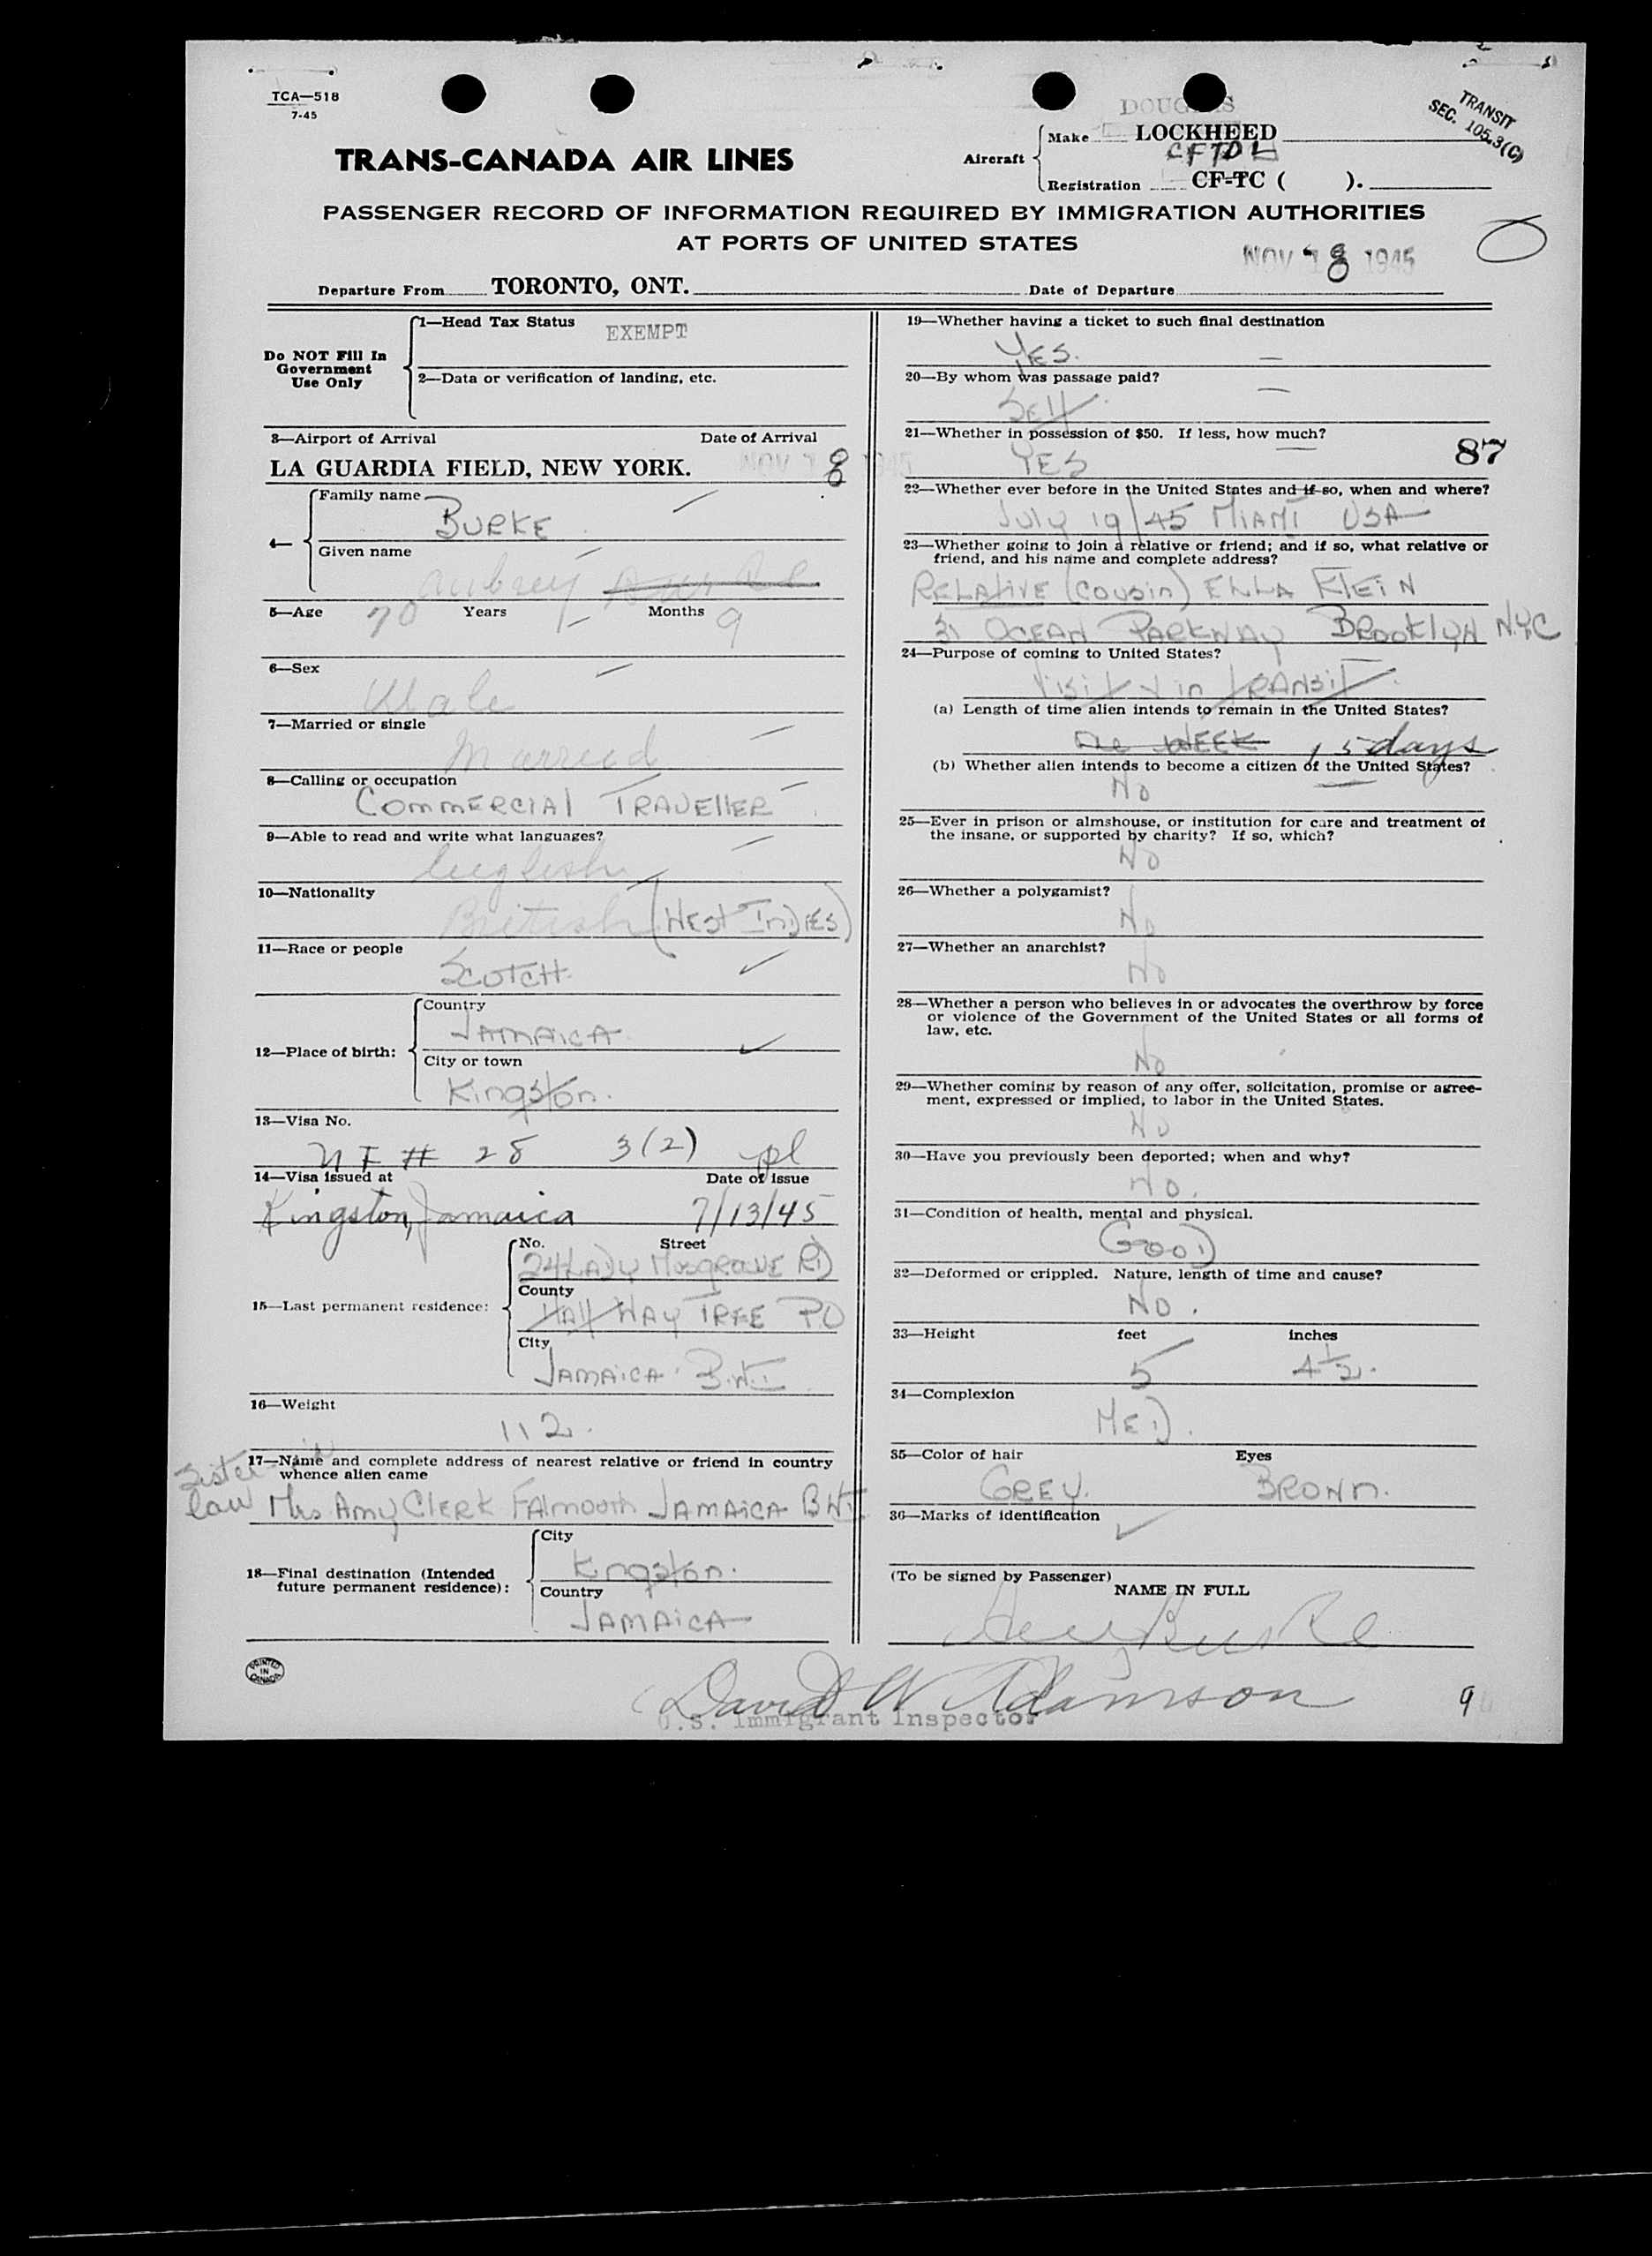 TCA—518
7-45
TRANSIT
SEC. 105.3(C)
TRANS-CANADA AIR LINES
Aircraft
Make LOCKHEED
CFTDL
Registration CF-TC ( ).
PASSENGER RECORD OF INFORMATION REQUIRED BY IMMIGRATION AUTHORITIES
AT PORTS OF UNITED STATES
NOV 8 1945
Departure From TORONTO, ONT. Date of Departure
Do NOT Fill In
Government
Use Only
1—Head Tax Status EXEMPT
2—Data or verification of landing, etc.
3—Airport of Arrival Date of Arrival
LA GUARDIA FIELD, NEW YORK. NOV 8 1945
4—
Family name
BURKE
Given name
Aubrey
5—Age 70 Years Months 9
6—Sex
Male
7—Married or single
Married
8—Calling or occupation
COMMERCIAL TRAVELLER
9—Able to read and write what languages?
English
10—Nationality
British (WEST INDIES)
11—Race or people
SCOTCH
12—Place of birth:
Country
JAMAICA
City or town
Kingston.
13—Visa No.
# 28 3(2)
14—Visa issued at Date of issue
Kingston, Jamaica 7/13/45
15—Last permanent residence:
No. Street
24 LADY MUSGRAVE RD
County
HALF WAY TREE P.O
City
JAMAICA B.W.I
16—Weight
112.
17—Name and complete address of nearest relative or friend in country
whence alien came
Sister in
law Mrs Amy CLERK FALMOUTH JAMAICA BWI
18—Final destination (Intended
future permanent residence):
City
Kingston.
Country
JAMAICA
PRINTED
IN
CANADA
19—Whether having a ticket to such final destination
YES.
20—By whom was passage paid?
Self
21—Whether in possession of $50. If less, how much?
YES
87
22—Whether ever before in the United States and if so, when and where?
July 19/45 MIAMI USA
23—Whether going to join a relative or friend; and if so, what relative or
friend, and his name and complete address?
RELATIVE (COUSIN) ELLA KLEIN
31 OCEAN PARKWAY BROOKLYN N.Y.C
24—Purpose of coming to United States?
Visit & in TRANSIT.
(a) Length of time alien intends to remain in the United States?
One WEEK 15 days
(b) Whether alien intends to become a citizen of the United States?
No
25—Ever in prison or almshouse, or institution for care and treatment of
the insane, or supported by charity? If so, which?
No
26—Whether a polygamist?
No
27—Whether an anarchist?
No
28—Whether a person who believes in or advocates the overthrow by force
or violence of the Government of the United States or all forms of
law, etc.
No
29—Whether coming by reason of any offer, solicitation, promise or agree-
ment, expressed or implied, to labor in the United States.
No
30—Have you previously been deported; when and why?
No.
31—Condition of health, mental and physical.
GOOD
32—Deformed or crippled. Nature, length of time and cause?
NO.
33—Height feet inches
5 4 1/2.
34—Complexion
MED.
35—Color of hair Eyes
GREY. BROWN.
36—Marks of identification
(To be signed by Passenger)
NAME IN FULL
Burke
David W Adamson
U.S. Immigrant Inspector
9